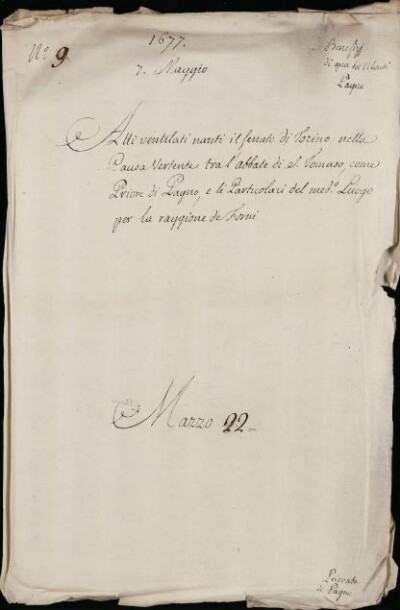 N.º 9
1677.
7. Maggio
Benefizj
di qua da' Monti
Pagno
Atti ventilati nanti il Senato di Torino nella
Causa Vertente tra l'abbate di S. Tomaso, come
Priore di Pagno, e li Particolari del med.º Luogo
per la raggione de Forni
Mazzo 22
Priorato
di Pagno